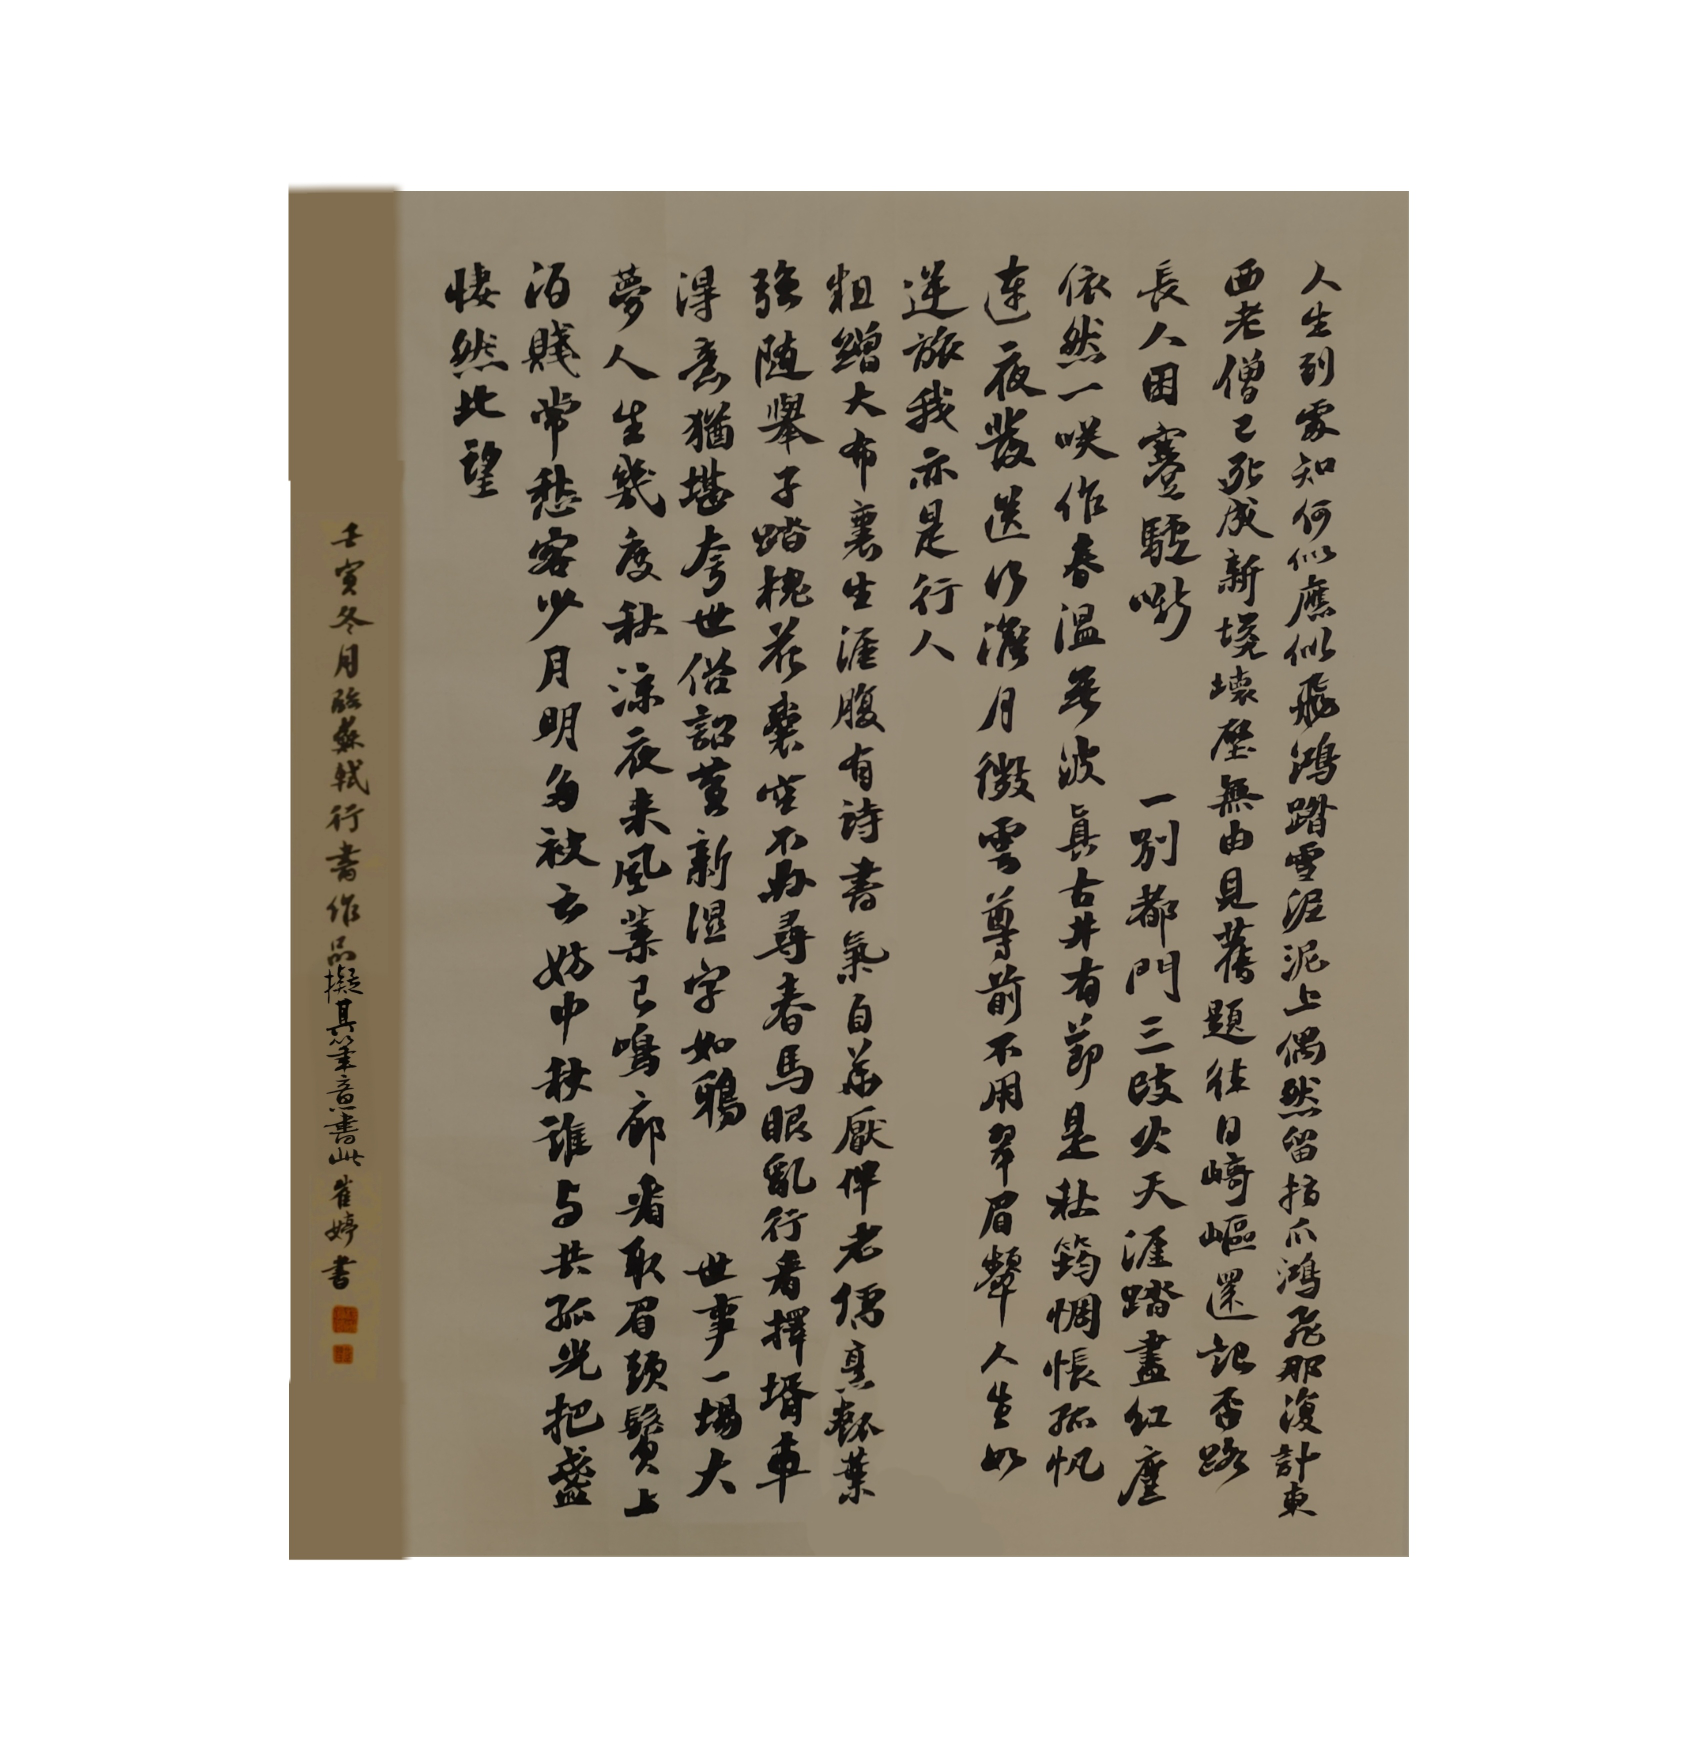 人生到處知何似應似飛鴻踏雪泥泥上偶然留指爪鴻飛那復計東
西老僧已死成新塔壞壁無由見舊題往日崎嶇還記否路
長人困蹇驢嘶 一別都門三改火天涯踏盡紅塵
依然一笑作春溫無波真古井有節是秋筠惆悵孤帆
連夜發送行淡月微雲尊前不用翠眉顰人生如
逆旅我亦是行人
粗繒大布裹生涯腹有詩書氣自華厭伴老儒烹瓠葉
強隨舉子踏槐花囊空不辦尋春馬眼亂行看擇壻車
得意猶堪夸世俗詔黃新濕字如鴉 世事一場大
夢人生幾度秋涼夜来風葉已鳴廊看取眉頭鬢上
酒賤常愁客少月明多被云妨中秋誰与共孤光把盞
悽然北望
壬寅冬月臨蘇軾行書作品擬其筆意書此崔婷書